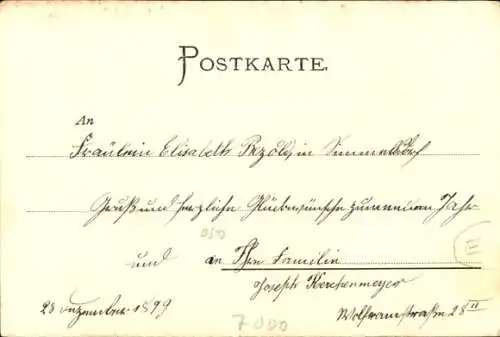 POSTKARTE.
An
Fräulein Elisabeth Pezold, in Simmelsdorf
Gruß und herzliche Glückwünsche zum neuen Jahr
und an Ihre Familie
Joseph Kerschenmeyer
28 Dezember 1899 Wolframstraße 28 II
7000
E